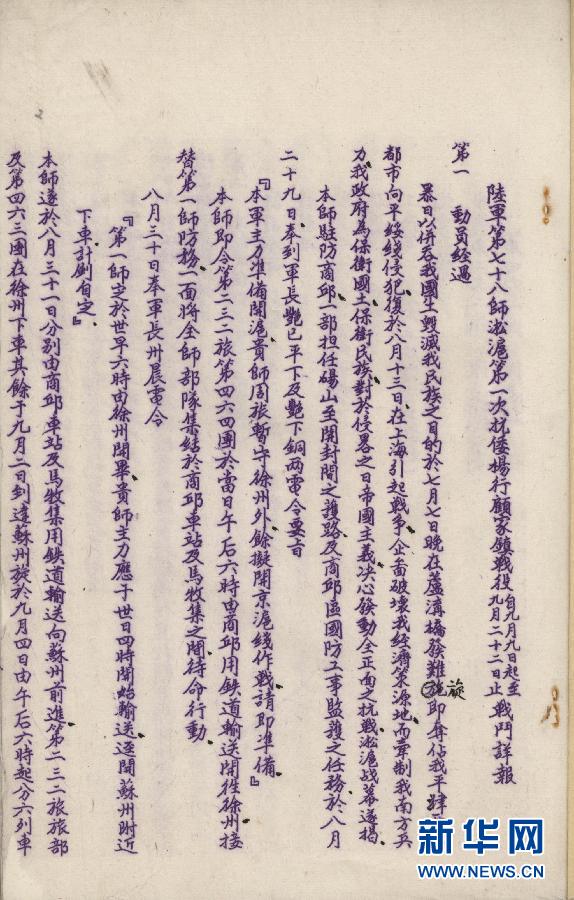 陸軍第七十八師淞滬第一次抗倭楊行顧家鎮戰役自九月九日起至九月二十二日止戰鬥詳報
第一　動員經過
暴日以併吞我國土毀滅我民族之目的於七月七日晚在蘆溝橋發難旋即奪佔我平
都市向平綏綫侵犯復於八月十三日在上海引起戰爭企啚破壞我經濟策源地而牽制我南方兵
力我政府為保衛國土保衛民族對於侵畧之日帝國主義決心發動全正面之抗戰淞滬战幕遂揭
本師駐防商邱一部担任碭山至開封間之護路及商邱區國防工事監護之任務於八月
二十九日奉到軍長艷巳平下及艷下銅兩電令要旨
『本軍主力準備開滬貴師周旅暫守徐州外餘擬開京滬綫作戰請即準備』
本師即令第二三二旅第四六四團於當日午后六時由商邱用鉄道輸送開往徐州接
替第一師防務一面將全師部隊集結於商邱車站及馬牧集之間待命行動
八月三十日奉軍長卅晨電令
『第一師定於世早六時由徐州開畢貴師主力應于世日四時開始輸送逕開蘇州附近
下車計劃自定』
本師遂於八月三十一日分別由商邱車站及馬牧集用鉄道輸送向蘇州前進第二三二旅旅部
及第四六三團在徐州下車其餘于九月二日到達蘇州旋於九月四日由午后六時起分六列車
新华网
WWW.NEWS.CN